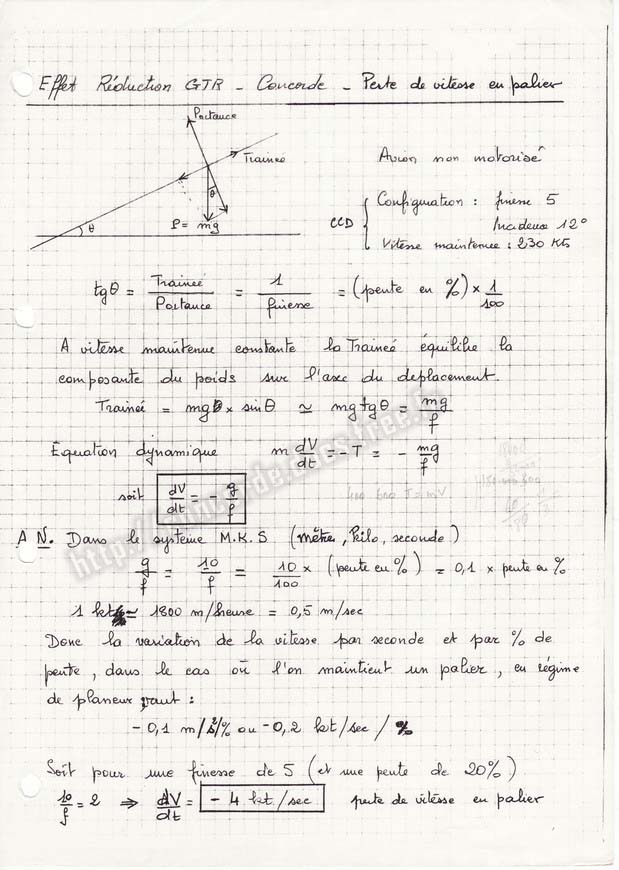 Effet Réduction GTR - Concorde - Perte de vitesse en palier
Portance
Trainée
θ
θ
P = mg
Avion non motorisé
CCD { Configuration : finesse 5
Incidence 12°
Vitesse maintenue : 230 Kts
tgθ = Trainée / Portance = 1 / finesse = (pente en %) × 1/100
A vitesse maintenue constante la Trainée équilibre la
composante du poids sur l'axe du deplacement.
Trainée = mg × sinθ ≃ mg tgθ = mg/f
Équation dynamique m dV/dt = -T = - mg/f
soit dV/dt = - g/f
A N. Dans le système M.K.S (mètre, kilo, seconde)
g/f = 10/f = 10/100 × (pente en %) = 0,1 × pente en %
1 kt ≃ 1800 m/heure = 0,5 m/sec
Donc la variation de la vitesse par seconde et par % de
pente, dans le cas où l'on maintient un palier, en régime
de planeur vaut :
- 0,1 m/s²/% ou -0,2 kt/sec / %
Soit pour une finesse de 5 (et une pente de 20%)
10/f = 2 ⇒ dV/dt = - 4 kt/sec perte de vitesse en palier